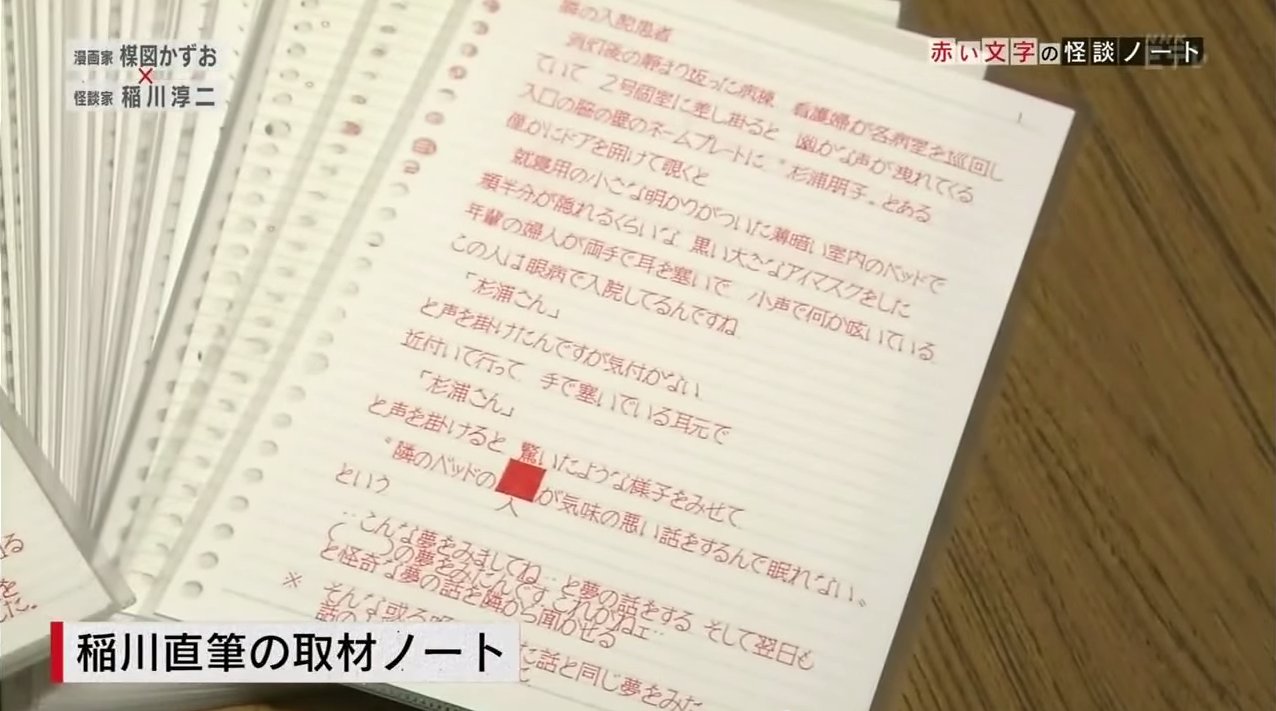 漫画家 楳図かずお
×
怪談家 稲川淳二
赤い文字の怪談ノート
NHK
Eテレ
1
隣の入院患者
消灯後の静まり返った病棟 看護婦が各病室を巡回し
ていて 2号個室に差し掛ると 幽かな声が現れてくる
入口の脇の壁のネームプレートに “杉浦朋子„とある
僅かにドアを開けて覗くと
就寝用の小さな明かりがついた薄暗い室内のベッドで
顔半分が隠れるくらいな 黒い大きなアイマスクをした
年輩の婦人が両手で耳を塞いで 小声で何か呟いている
この人は眼病で入院してるんですね
「杉浦さん」
と声を掛けたんですが気付かない
近付いて行って 手で塞いでいる耳元で
「杉浦さん」
と声を掛けると 驚いたような様子をみせて
“隣のベッドの
人
が気味の悪い話をするんで眠れない„
という
‥こんな夢をみましてね‥と夢の話をする そして翌日も
( )の夢をみたんです これがねェ‥
と怪奇な夢の話を隣から聞かせる
※ そんな或る
話の
た話と同じ夢をみた
る
を
た。
稲川直筆の取材ノート